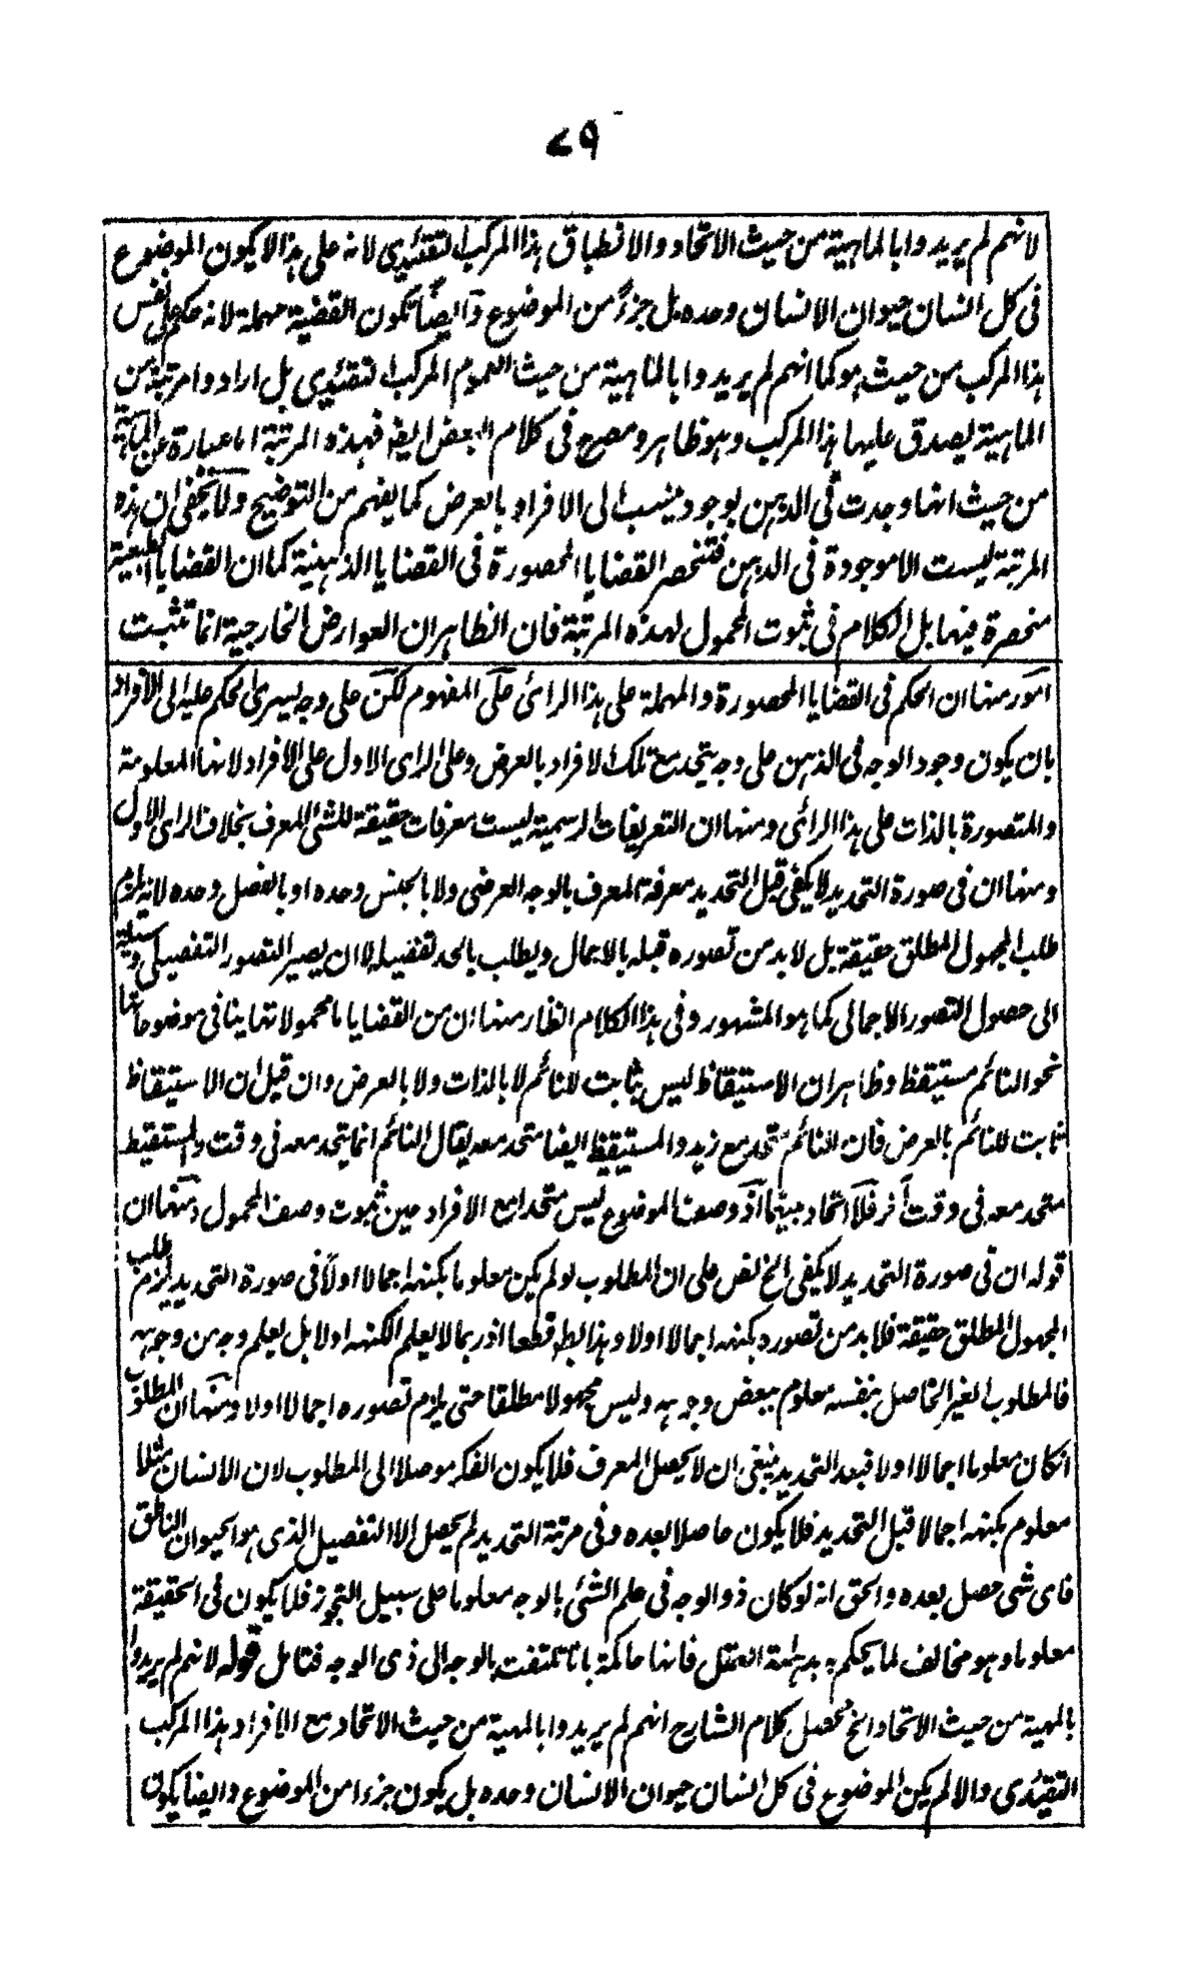 ٧٩
لانهم لم يريدوا بالماهية من حيث الاتحاد والانطباق هذا المركب التقئيدي لانه على هذا لا يكون الموضوع
فى كل انسان حيوان الانسان وحده بل جزءً من الموضوع وايضاً تكون القضية مهملة لانه حكم على نفس
هذا المركب من حيث هو كما انهم لم يريدوا بالماهية من حيث العموم المركب التقئيدي بل ارادوا مرتبة من
الماهية يصدق عليها هذا المركب وهو ظاهر ومصرح فى كلام البعض ايضا فهذه المرتبة اما عبارة عن الماهية
من حيث انها وجدت فى الذهن بوجود ينسب الى الافراد بالعرض كما يفهم من التوضيح ولا يخفى ان هذه
المرتبة ليست الا موجودة فى الذهن فتنحصر القضايا المحصورة فى القضايا الذهنية كما ان القضايا الطبعية
منحصرة فيها بل الكلام فى ثبوت المحمول لهذه المرتبة فان الظاهر ان العوارض الخارجية انما تثبت
امور منها ان الحكم فى القضايا المحصورة والمهملة على هذا الرائ على المفهوم لكن على وجه يسرى الحكم عليه الى الافراد
بان يكون وجود الوجه فى الذهن على وجه يتحد مع تلك الافراد بالعرض وعلى الراى الاول على الافراد لانها المعلومة
والمتصورة بالذات على هذا الرائى ومنها ان التعريفات الرسمية ليست معرفات حقيقة للشئ المعرف بخلاف الراى الاول
ومنها ان فى صورة التحديد لا يكفى قبل التحديد معرفة المعرف بالوجه العرضى ولا بالجنس وحده او بالفصل وحده لانه يلزم
طلب المجهول المطلق حقيقة بل لابد من تصوره قبله بالاجمال ويطلب بالحد تفضيله لا ان يصير التصور التفصيلى وسيلة
الى حصول التصور الاجمالى كما هو المشهور وفى هذا الكلام انظار منها ان من القضايا ما محمولاتها ينافى موضوعاتها
نحو النائم مستيقظ وظاهر ان الاستيقاظ ليس بثابت للنائم لا بالذات ولا بالعرض وان قيل ان الاستيقاظ
ثابت للنائم بالعرض فان النائم متحد مع زيد والمستيقظ ايضا متحد معه يقال النائم انما يتحد معه فى وقت والمستيقظ
متحد معه فى وقت آخر فلا اتحاد بينهما اذ وصف الموضوع ليس متحدا مع الافراد حين ثبوت وصف المحمول ومنها ان
قوله ان فى صورة التحديد لا يكفى الخ نص على ان المطلوب لو لم يكن معلوما بكنهه اجمالا اولا فى صورة التحديد يلزم طلب
المجهول المطلق حقيقة فلا بد من تصوره بكنهه اجمالا اولا وهذا بط قطعا اذ ربما لا يعلم الكنه اولا بل يعلم وجه من وجوهه
فالمطلوب الغير الحاصل بنفسه معلوم ببعض وجوهه وليس مجهولا مطلقا حتى يلزم تصوره اجمالا اولا ومنها ان المطلوب
انكان معلوما اجمالا اولا فبعد التحديد ينبغى ان لا يحصل المعرف فلا يكون الفكر موصلا الى المطلوب لان الانسان مثلا
معلوم بكنهه اجمالا قبل التحديد فلا يكون حاصلا بعده وفى مرتبة التحديد لم يحصل الا التفصيل الذى هو الحيوان الناطق
فاى شى حصل بعده والحق انه لو كان ذو الوجه فى علم الشئ بالوجه معلوما على سبيل التجوز فلا يكون فى الحقيقة
معلوما وهو مخالف لما يحكم به بداهة العقل فانها حاكمة بانا نلتفت بالوجه الى ذى الوجه فتامل قوله لانهم لم يريدوا
بالمهية من حيث الاتحاد الخ محصل كلام الشارح انهم لم يريدوا بالمهية من حيث الاتحاد مع الافراد هذا المركب
التقيئدى والا لم يكن الموضوع فى كل انسان حيوان الانسان وحده بل يكون جزءا من الموضوع وايضا يكون